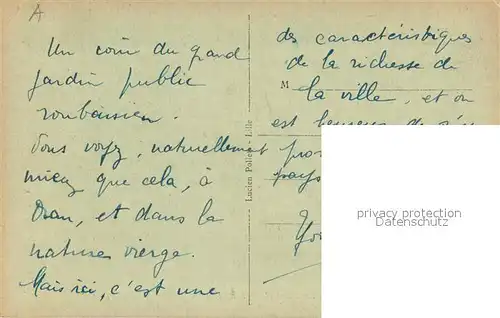 A
Un coin du grand
jardin public
roubaisien.
Vous voyez, naturellement
mieux que cela, à
Oran, et dans la
nature vierge.
Mais ici, c'est une
Lucien Pollet - Lille
des caractéristiques
de la richesse de
M
la ville, et on
est heureux de
pays
privacy protection
www.oldthing.de